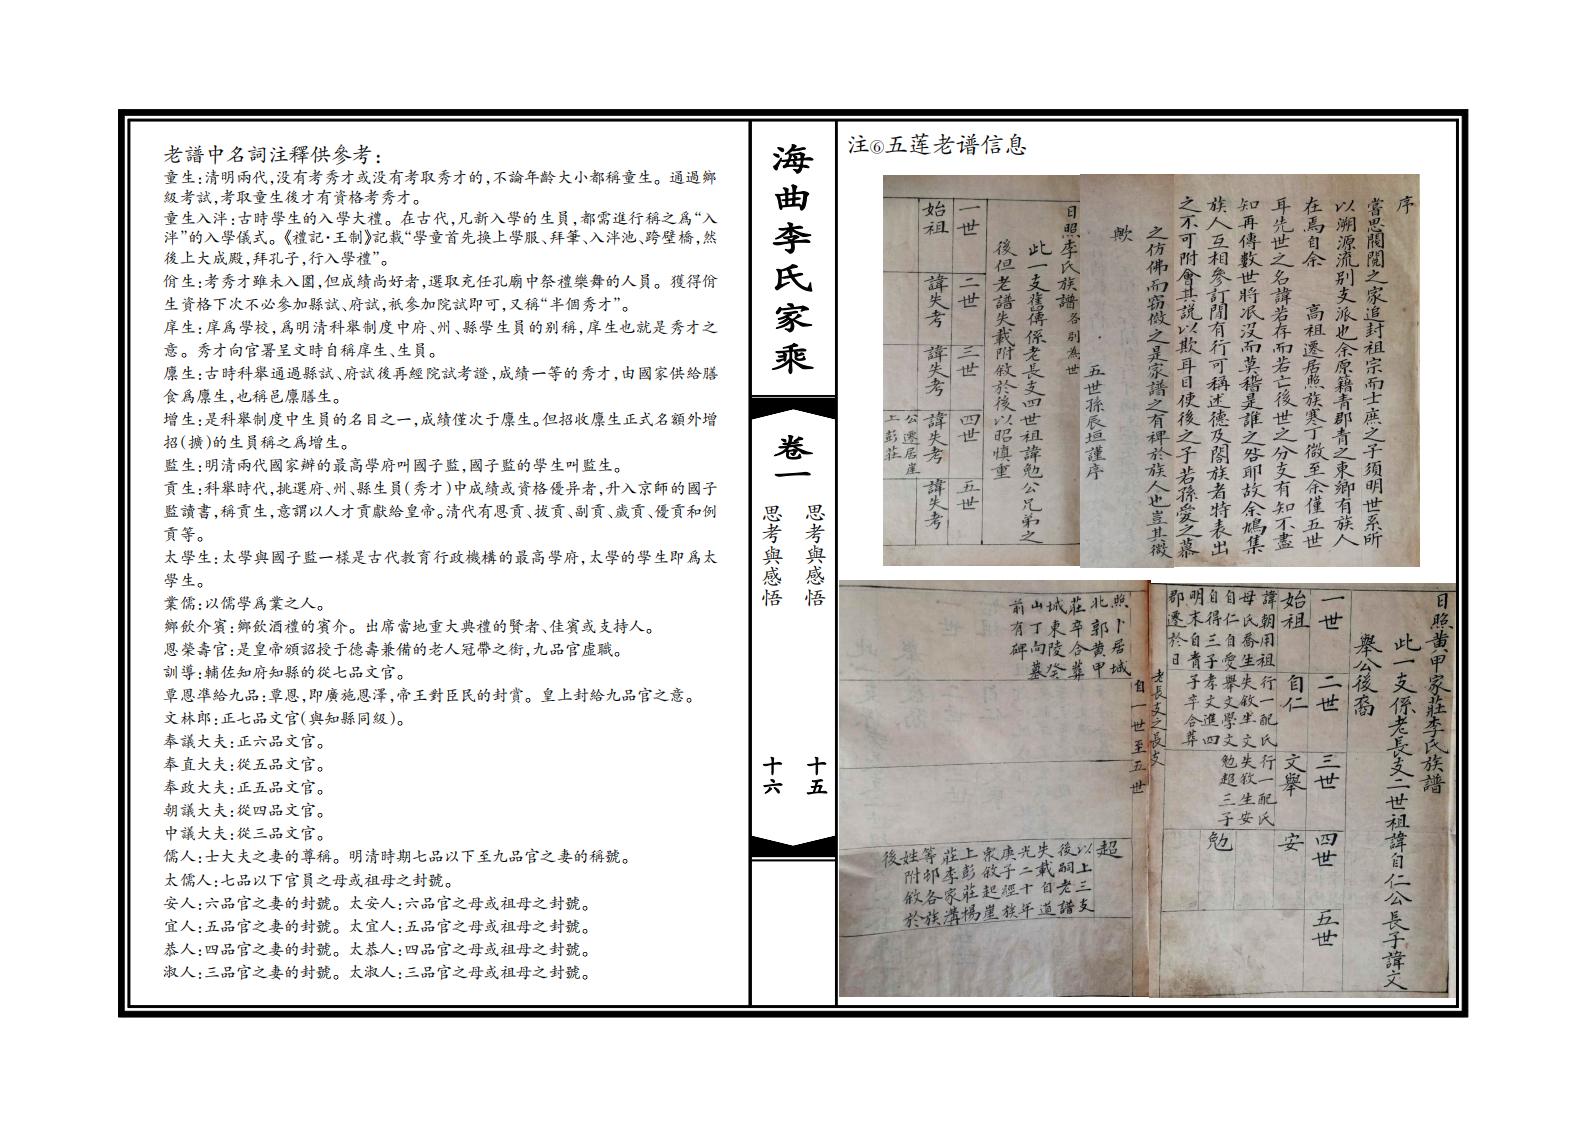 注⑥五莲老谱信息
序
嘗思閥閱之家追封祖宗而士庶之子須明世系所
以溯源流別支派也余原籍青郡青之東鄉有族人
在焉自余 高祖遷居照族寒丁微至余僅五世
耳先世之名諱若存而若亡後世之分支有知不盡
知再傳數世將泯沒而莫稽是誰之咎耶故余鳩集
族人互相參訂閒有行可稱述德及閤族者特表出
之不可附會其說以欺耳目使後之子若孫愛之慕
之仿佛而窃倣之是家譜之有裨於族人也豈其微
歟
五世孫辰垣謹序
日照李氏族譜各別為世
此一支舊傳係老長支四世祖諱勉公兄弟之
後但老譜失載附敘於後以昭慎重
一世 二世 三世 四世 五世
始祖 諱失考 諱失考 諱失考 諱失考
公遷居崖
上彭莊
日照黄甲家莊李氏族譜
此一支係老長支二世祖諱自仁公長子諱文
舉公後裔
一世 二世 三世 四世 五世
始祖 自仁 文舉 安
諱朝用祖
母氏喬生
自仁自愛
自得三子
明末自青
郡遷於日
行一配氏
失敘生文
舉文學文
孝文進四
子卒合葬
行一配氏
失敘生安
勉超三子
勉
老長支之長支
自一世至五世
照卜居城
北郭黄甲
莊卒合葬
城東陵癸
山丁向墓
前有碑
超
以上三支
後嗣老譜
失載自道
光二十年
庚子經族
眾敘起崖
上彭莊楊
莊李家溝
等邨各族
姓附敘於
後
海曲李氏家乘
卷一
思考與感悟
思考與感悟
十五
十六
老譜中名詞注釋供參考:
童生:清明兩代,没有考秀才或没有考取秀才的,不論年齡大小都稱童生。通過鄉
級考試,考取童生後才有資格考秀才。
童生入泮:古時學生的入學大禮。在古代,凡新入學的生員,都需進行稱之爲“入
泮”的入學儀式。《禮記·王制》記載“學童首先换上學服、拜筆、入泮池、跨壁橋,然
後上大成殿,拜孔子,行入學禮”。
佾生:考秀才雖未入圍,但成績尚好者,選取充任孔廟中祭禮樂舞的人員。獲得佾
生資格下次不必參加縣試、府試,衹參加院試即可,又稱“半個秀才”。
庠生:庠爲學校,爲明清科舉制度中府、州、縣學生員的别稱,庠生也就是秀才之
意。秀才向官署呈文時自稱庠生、生員。
廪生:古時科舉通過縣試、府試後再經院試考證,成績一等的秀才,由國家供給膳
食爲廪生,也稱邑廪膳生。
增生:是科舉制度中生員的名目之一,成績僅次于廪生。但招收廪生正式名額外增
招(擴)的生員稱之爲增生。
監生:明清兩代國家辦的最高學府叫國子監,國子監的學生叫監生。
貢生:科舉時代,挑選府、州、縣生員(秀才)中成績或資格優异者,升入京師的國子
監讀書,稱貢生,意謂以人才貢獻給皇帝。清代有恩貢、拔貢、副貢、歲貢、優貢和例
貢等。
太學生:太學與國子監一樣是古代教育行政機構的最高學府,太學的學生即爲太
學生。
業儒:以儒學爲業之人。
鄉飲介賓:鄉飲酒禮的賓介。出席當地重大典禮的賢者、佳賓或支持人。
恩榮壽官:是皇帝頒詔授于德壽兼備的老人冠帶之銜,九品官虚職。
訓導:輔佐知府知縣的從七品文官。
覃恩準給九品:覃恩,即廣施恩澤,帝王對臣民的封賞。皇上封給九品官之意。
文林郎:正七品文官(與知縣同級)。
奉議大夫:正六品文官。
奉直大夫:從五品文官。
奉政大夫:正五品文官。
朝議大夫:從四品文官。
中議大夫:從三品文官。
儒人:士大夫之妻的尊稱。明清時期七品以下至九品官之妻的稱號。
太儒人:七品以下官員之母或祖母之封號。
安人:六品官之妻的封號。太安人:六品官之母或祖母之封號。
宜人:五品官之妻的封號。太宜人:五品官之母或祖母之封號。
恭人:四品官之妻的封號。太恭人:四品官之母或祖母之封號。
淑人:三品官之妻的封號。太淑人:三品官之母或祖母之封號。